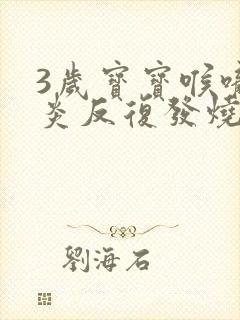 3歲寶寶喉嚨
炎反復發燒
劉海石